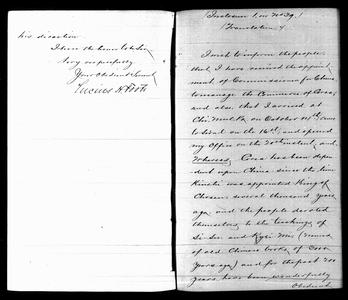 his discretion
I have the honor to be
Very respectfully
Your Obedient Servant
Lucius H Foote
Inclosure 1 in No 39.
Translation
I wish to inform the people
that I have received the appoint-
ment of Commissioner for China
to manage the Commerce of Corea,
and also that I arrived at
Chi Mul Po on October 14th, came
to Seoul on the 16th, and opened
my Office on the 20th instant, and
Whereas, Corea has been depen-
dent upon China since the time
Kintsi was appointed King of
Chosen several thousand years
ago, and the people devoted
themselves to the teachings of
Si-Su and (names
of old Chinese books of
years ago) and for the past 200
years have been wonderfully
Obedient